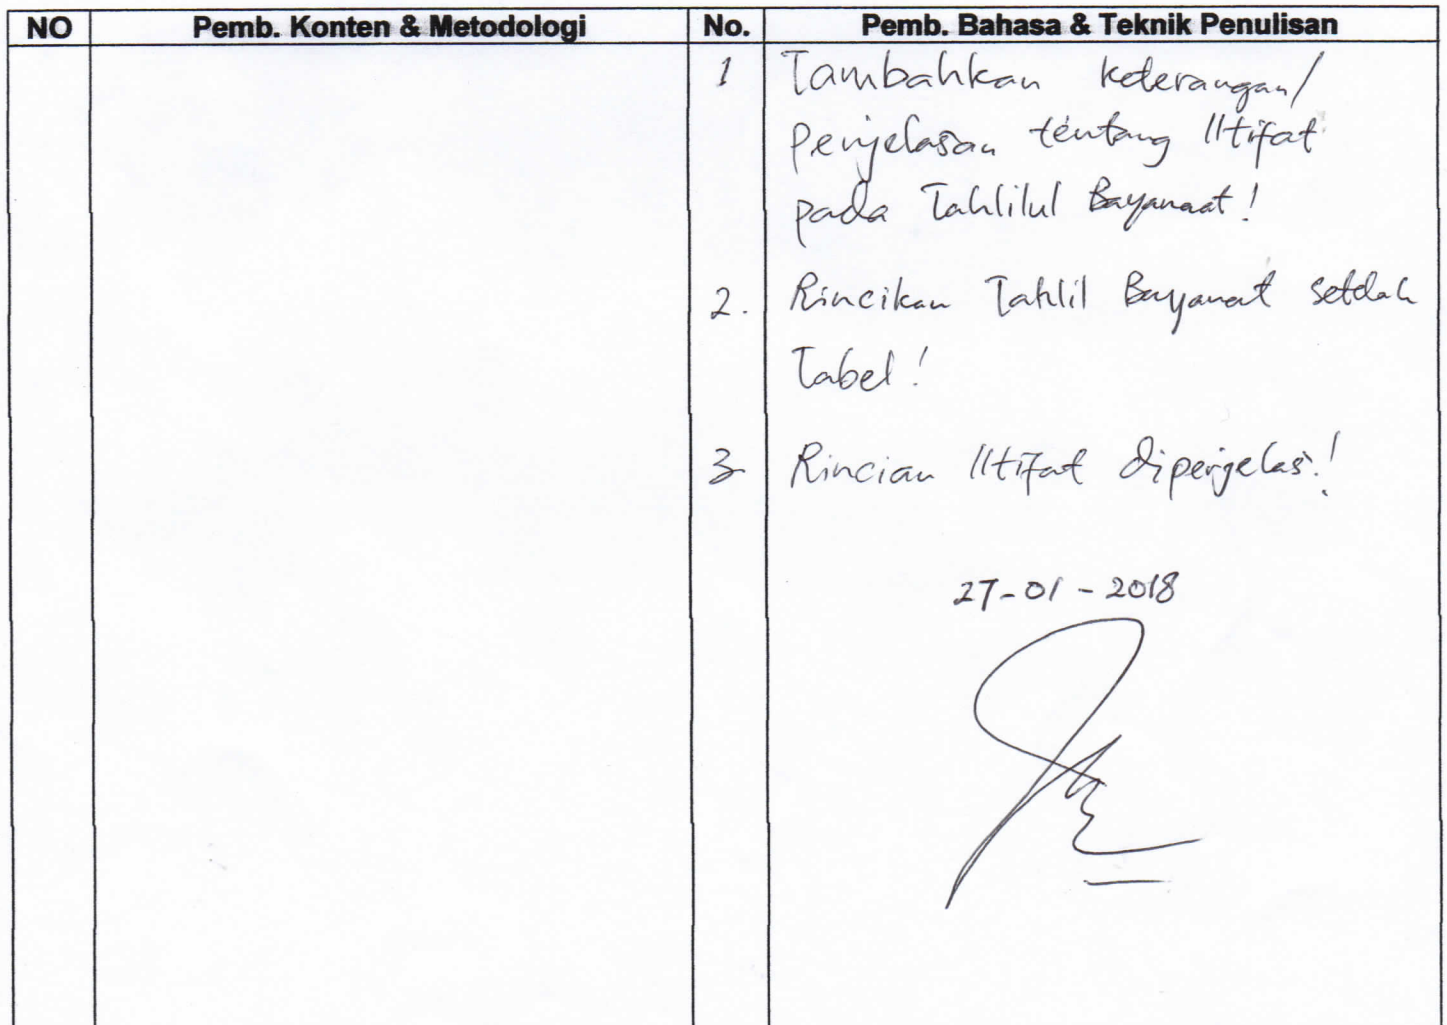 NO Pemb. Konten & Metodologi No. Pemb. Bahasa & Teknik Penulisan
1 Tambahkan keterangan/
penjelasan tentang Iltifat
pada Tahlilul Bayanaat!
2. Rincikan Tahlil Bayanaat setelah
Tabel!
3 Rincian Iltifat diperjelas!
27-01-2018